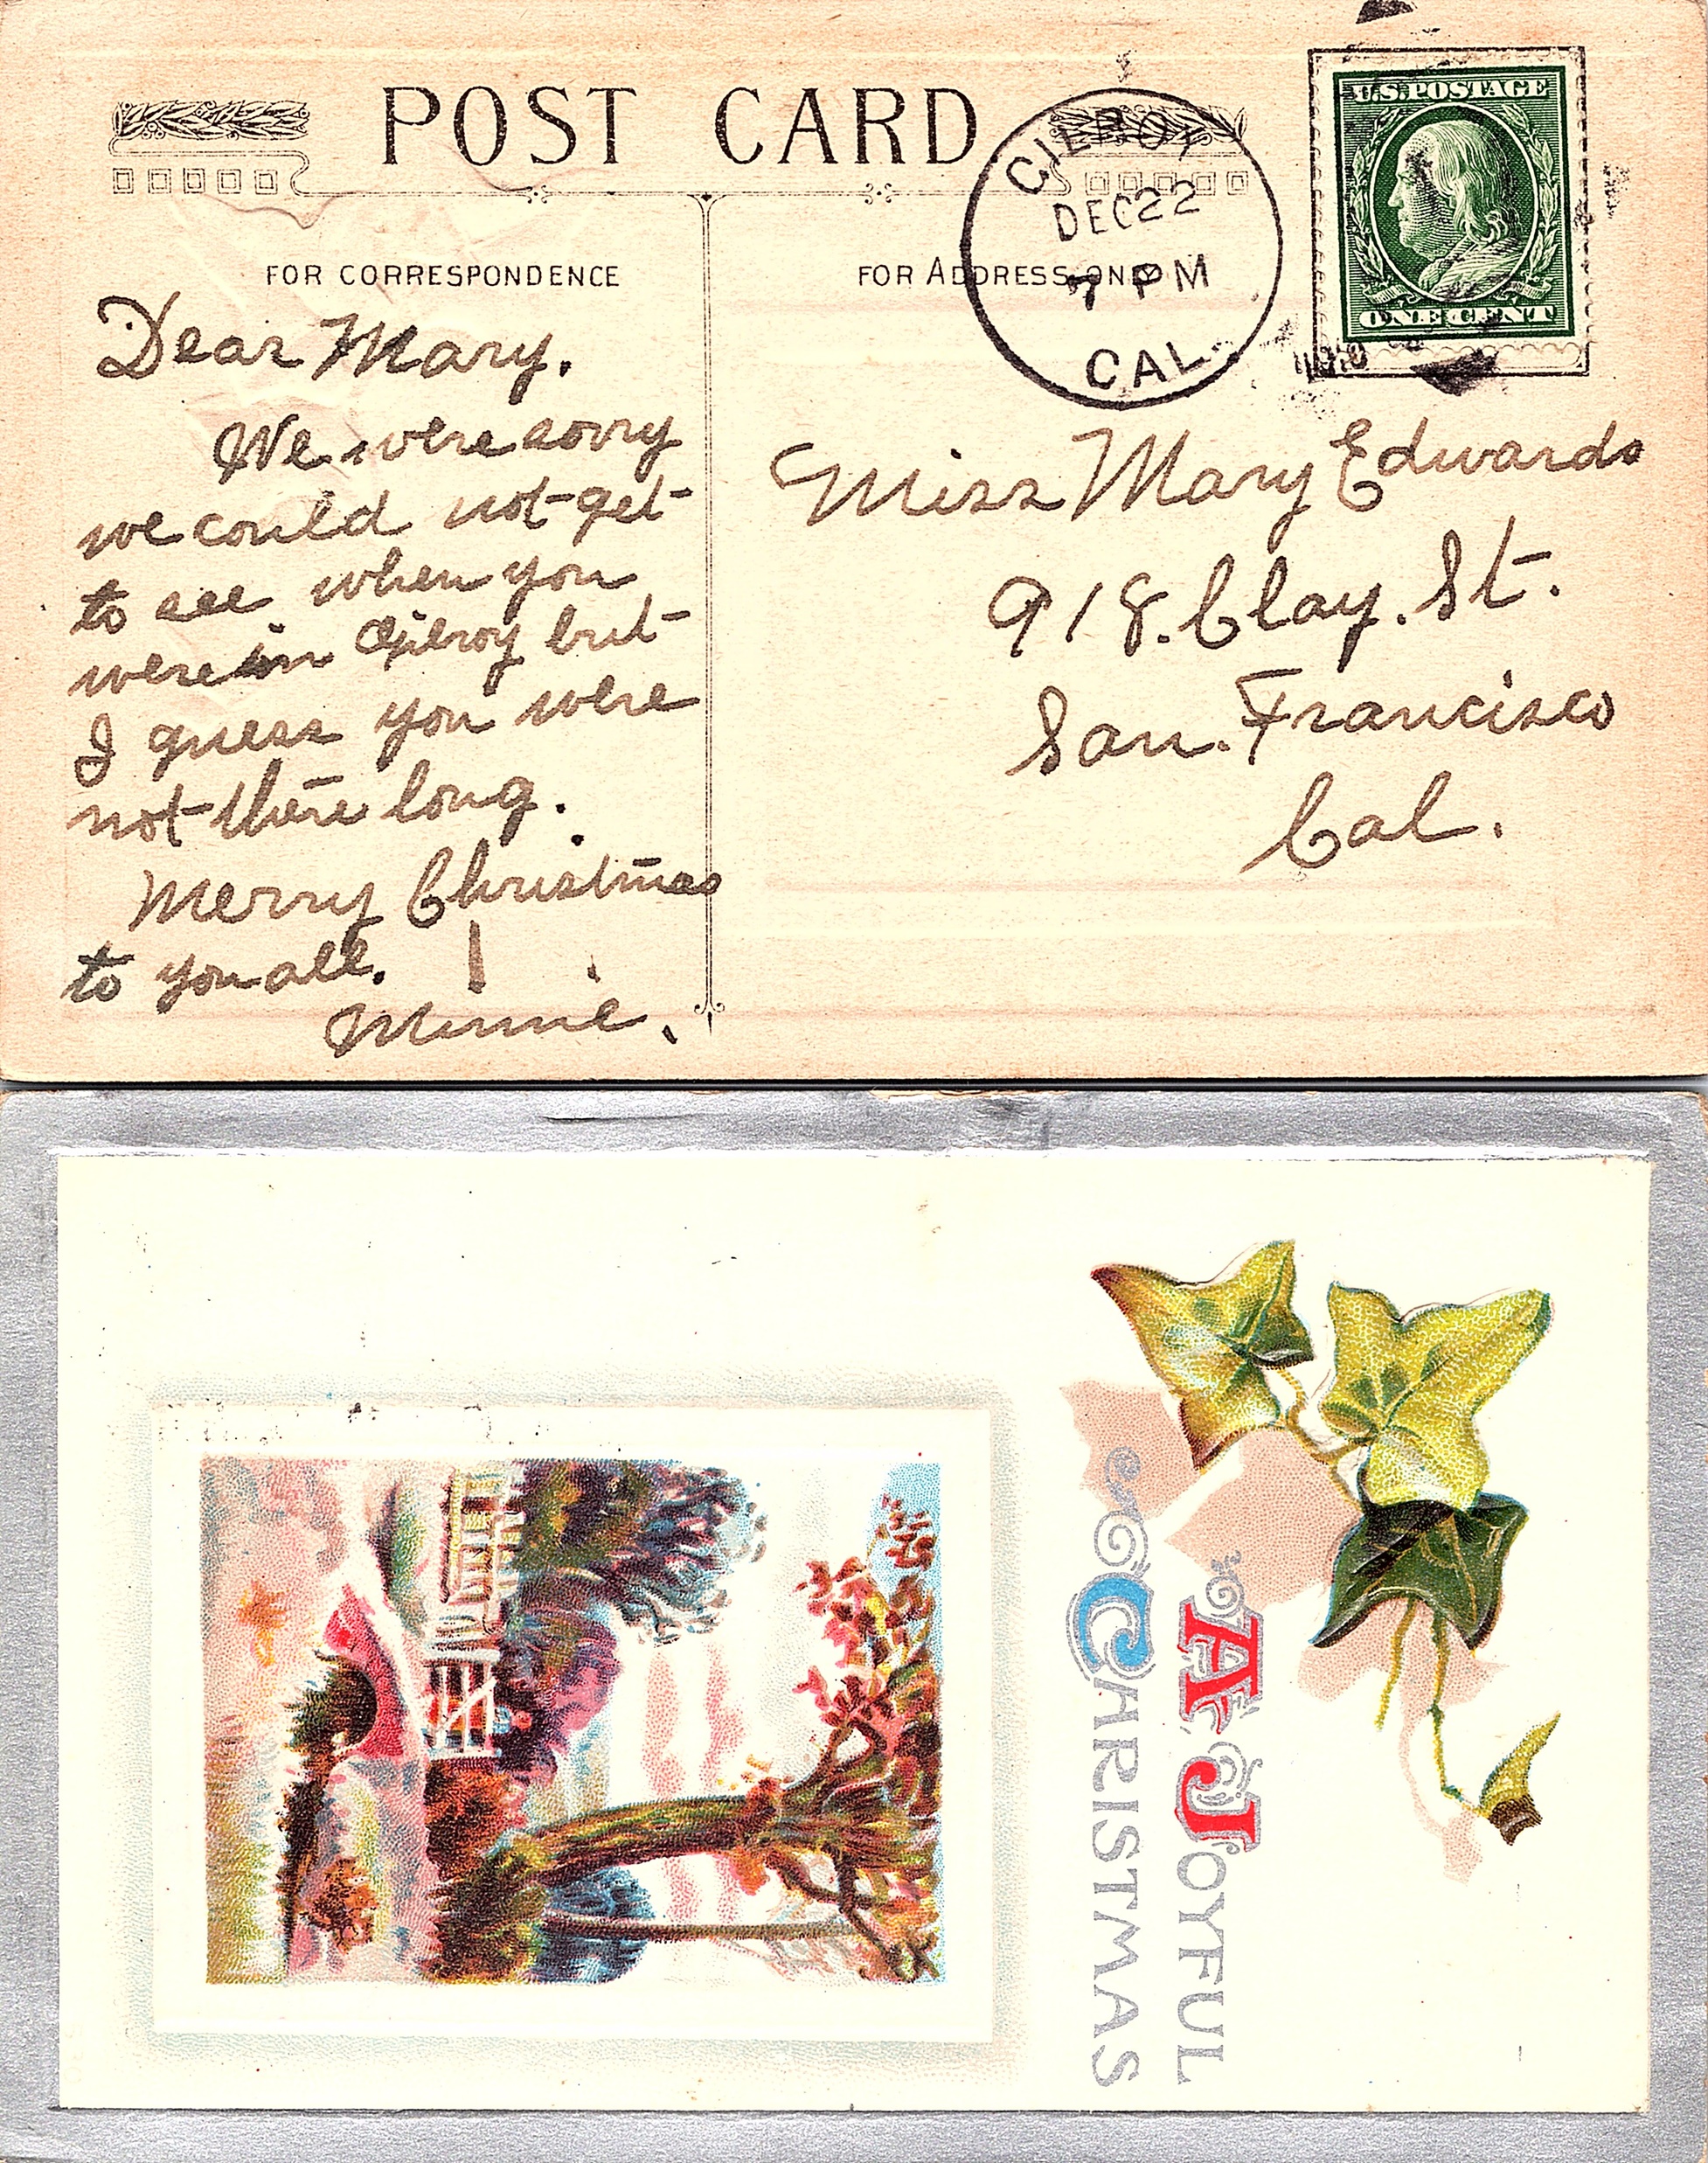 POST CARD
GILROY
DEC 22
7 PM
CAL.
U.S. POSTAGE
ONE CENT
FOR CORRESPONDENCE
FOR ADDRESS ONLY
Dear Mary.
We were sorry
we could not get
to see when you
were in Gilroy but
I guess you were
not there long.
Merry Christmas
to you all.
Minnie.
Miss Mary Edwards
918. Clay. St.
San. Francisco
Cal.
A JOYFUL
CHRISTMAS